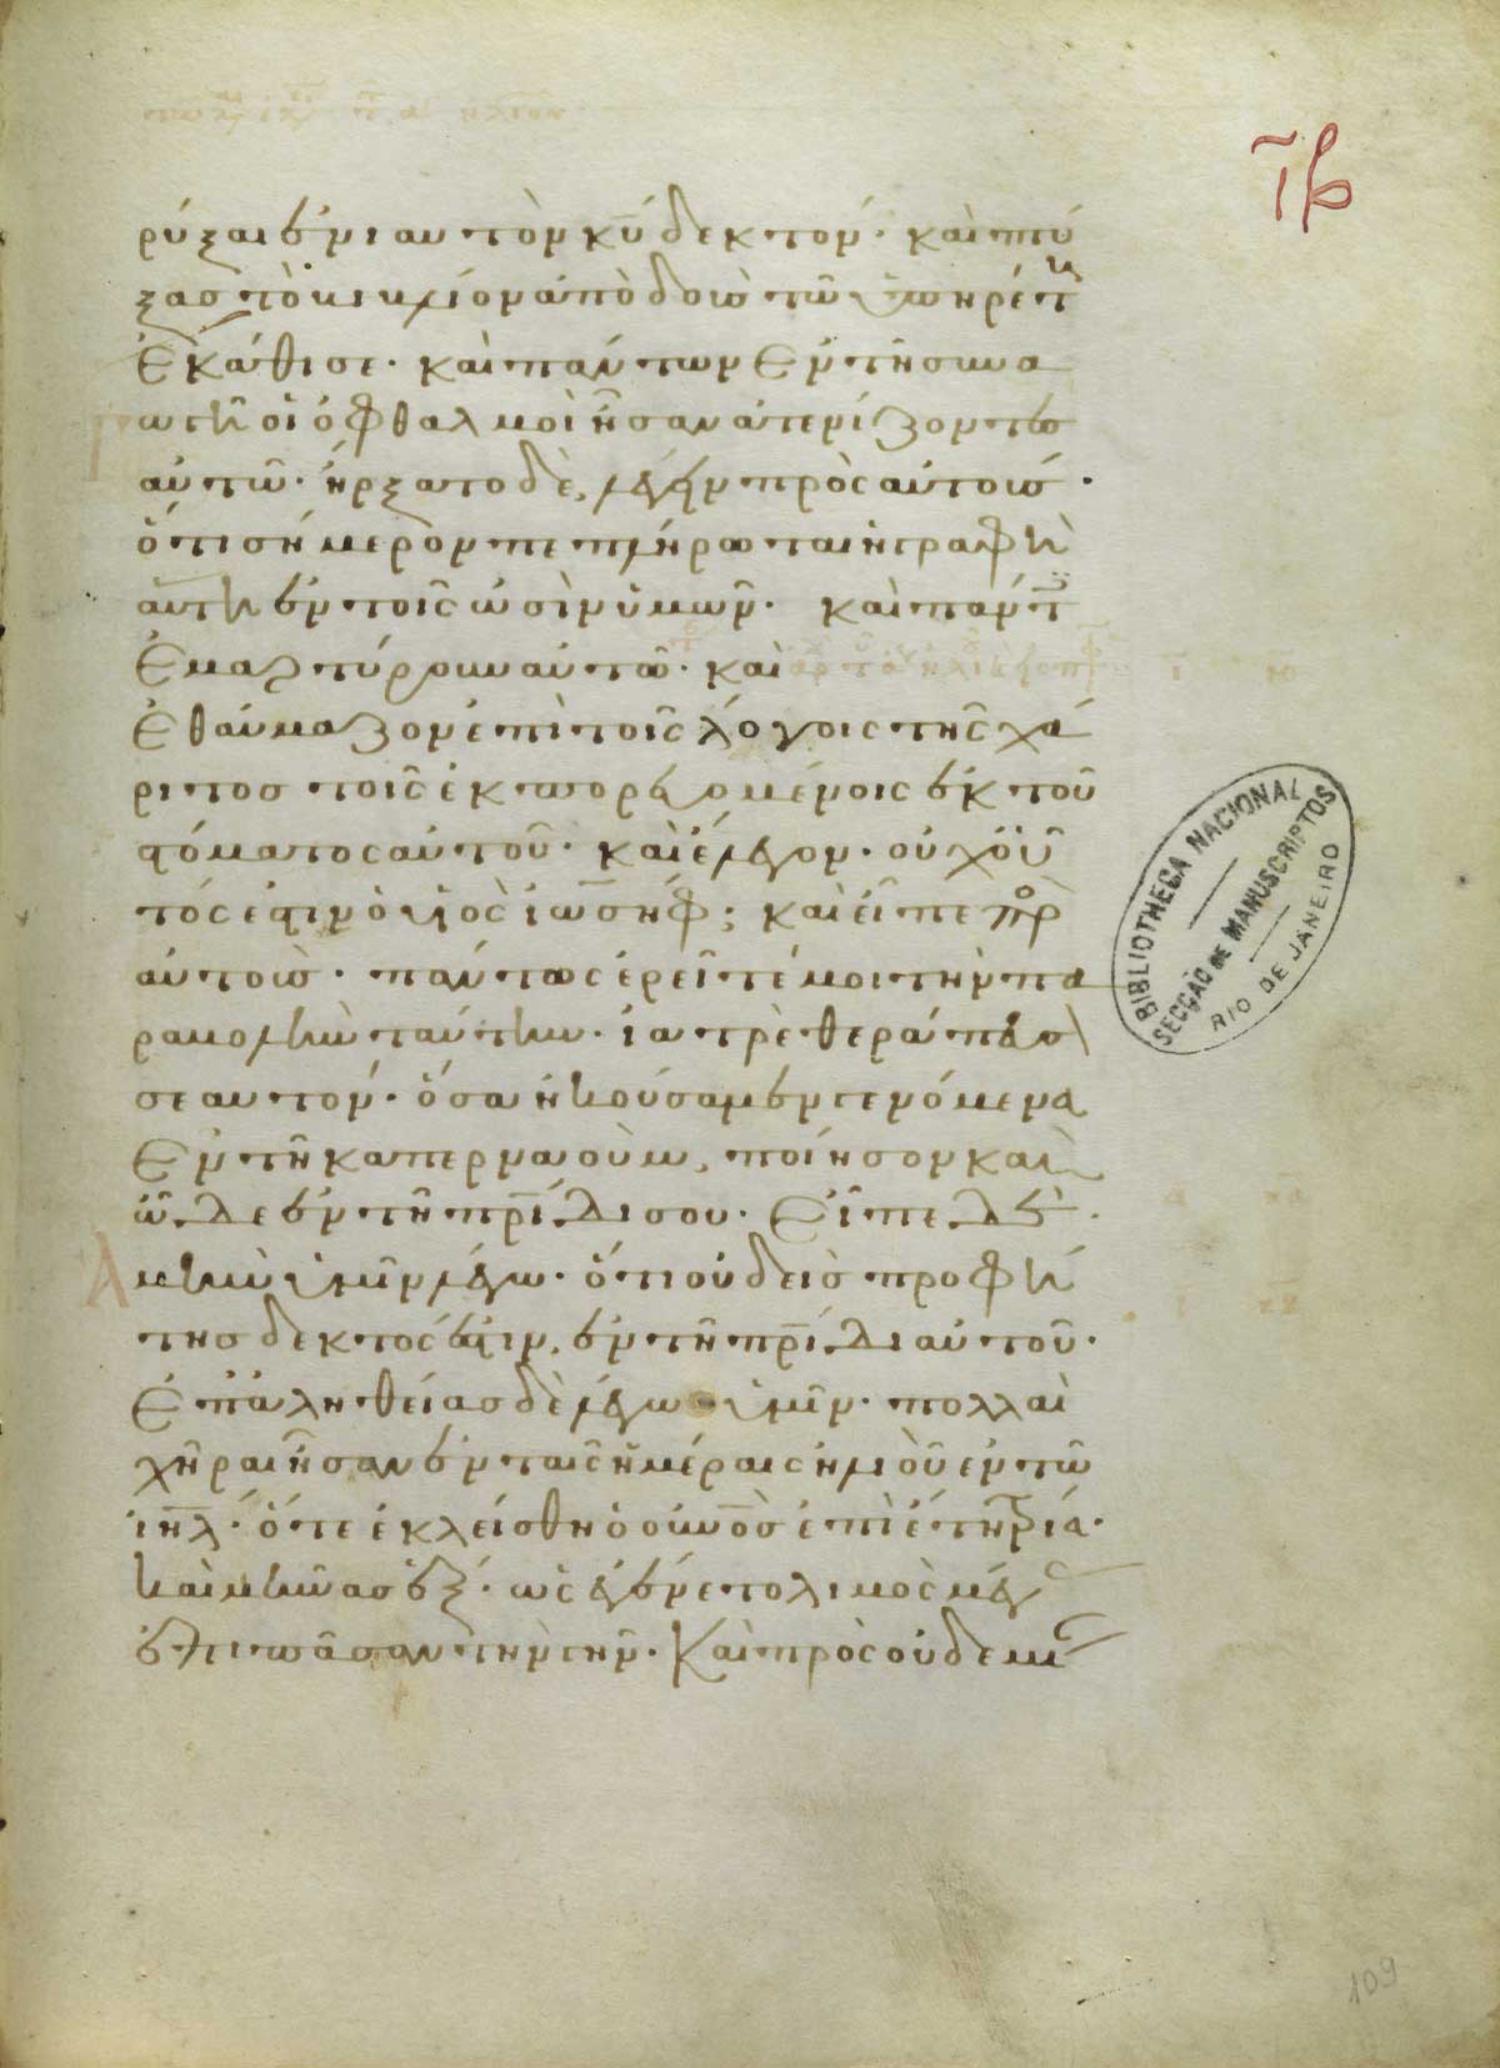 ιβ
ρύξαι ἐνιαυτὸν κ̅υ̅ δεκτόν· καὶ πτύ
ξας τὸ βιβλίον ἀποδοὺς τῶ ὑπηρέτη
ἐκάθισε· καὶ πάντων ἐν τῆ συνα
γωγῆ οἱ ὀφθαλμοὶ ἦσαν ἀτενίζοντες
αὐτῶ· ἤρξατο δὲ λέγειν πρὸς αὐτούς·
ὅτι σήμερον πεπλήρωται ἡ γραφὴ
αὕτη ἐν τοῖς ὠσὶν ὑμῶν· καὶ πάντ
ἐμαρτύρουν αὐτῶ· καὶ
ἐθαύμαζον ἐπὶ τοῖς λόγοις τῆς χά
ριτος τοῖς ἐκπορευομένοις ἐκ τοῦ
στόματος αὐτοῦ· καὶ ἔλεγον· οὐχ οὗ
τός ἐστιν ὁ υἱὸς ἰωσήφ; καὶ εἶπε πρ
αὐτούς· πάντως ἐρεῖτέ μοι τὴν πα
ραβολὴν ταύτην· ἰατρὲ θεράπευσ
σεαυτόν· ὅσα ἠκούσαμεν γενόμενα
ἐν τῆ καπερναοὺμ, ποίησον καὶ
ὧδε ἐν τῆ π̅ρ̅ίδι σου· εἶπε δὲ·
ἀμὴν ὑμῖν λέγω· ὅτι οὐδεὶς προφή
της δεκτός ἐστιν, ἐν τῆ π̅ρ̅ίδι αὐτοῦ·
ἐπ' ἀληθείας δὲ λέγω ὑμῖν· πολλαὶ
χῆραι ἦσαν ἐν ταῖς ἡμέραις ἠλιοῦ ἐν τῶ
ι̅η̅λ̅· ὅτε ἐκλείσθη ὁ οὐνὸς ἐπὶ ἔτη τρία·
καὶ μῆνας ἕξ· ὡς ἐγένετο λιμὸς μέγας
ἐπὶ πᾶσαν τὴν γῆν· καὶ πρὸς οὐδεμί
BIBLIOTHECA NACIONAL
SECÇÃO DE MANUSCRIPTOS
RIO DE JANEIRO
109